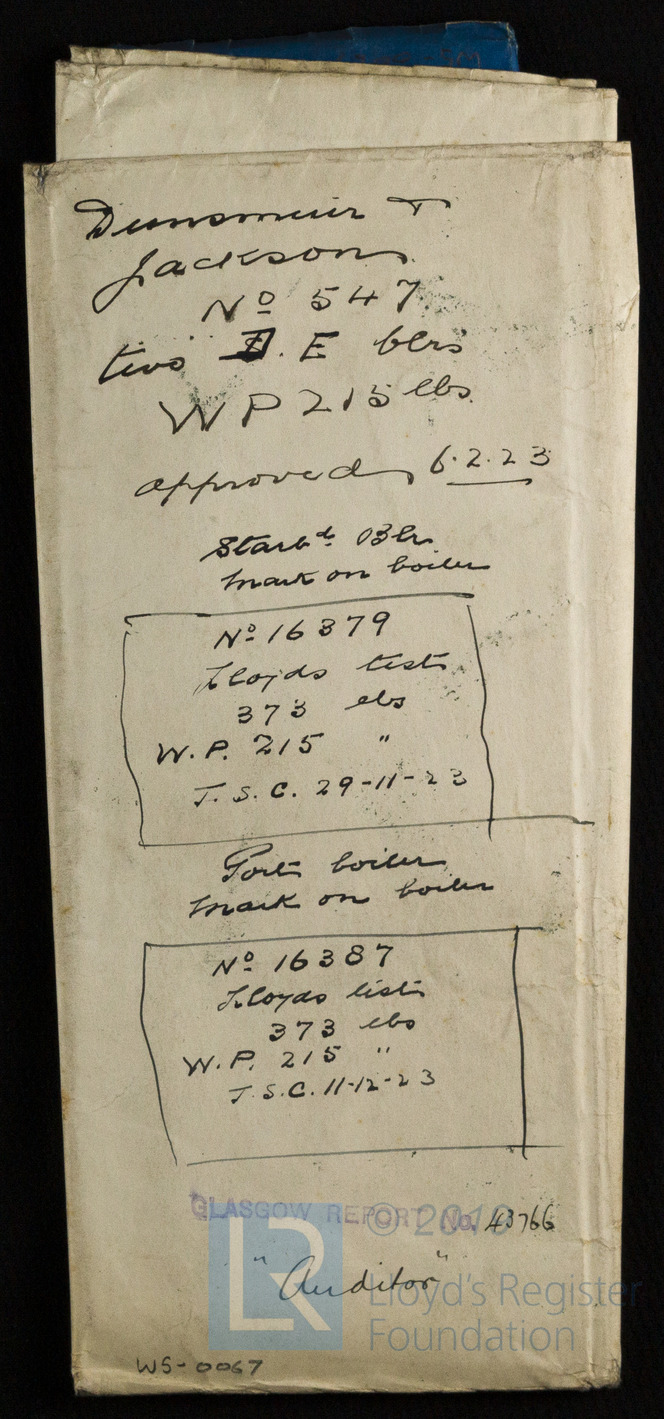 Dunsmuir &
Jackson
Nº 547
two D.E blrs
WP 215 lbs
approved 6.2.23
Starbd. Blr
Mark on boiler
Nº 16379
Lloyds test
373 lbs
W.P. 215 "
J.S.C. 29-11-23
Port boiler
Mark on boiler
Nº 16387
Lloyds test
373 lbs
W.P. 215 "
J.S.C. 11-12-23
GLASGOW REPORT No. 43766
© 2019
"Auditor"
LR
Lloyd's Register
Foundation
WS-0067